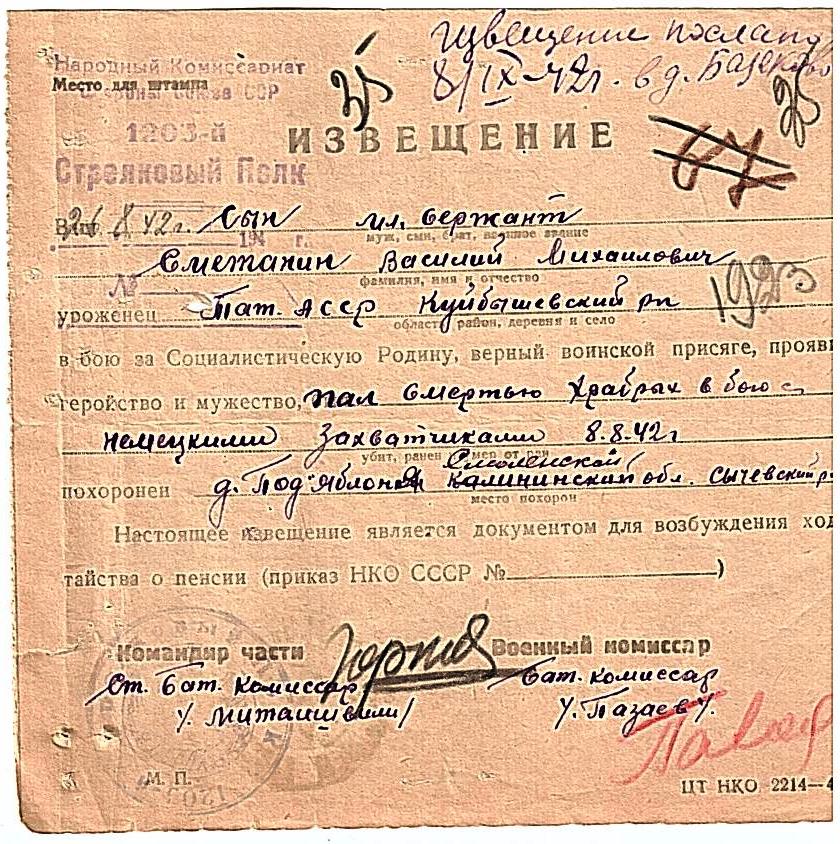 Извещение послано
8/IX-42г. в д. Базеково
35
25
Народный Комиссариат
Место для штампа
Обороны Союза ССР
1203-й
Стрелковый Полк
ИЗВЕЩЕНИЕ
67
Ваш Сын мл. сержант
26 8 42г.
194 г.
муж, сын, брат, военное звание
Сметанин Василий Михаилович
№
фамилия, имя и отчество
1923
уроженец Тат. АССР Куйбышевский рн
область, район, деревня и село
в бою за Социалистическую Родину, верный воинской присяге, прояви
геройство и мужество, пал смертью храбрых в бою с
немецкими захватчиками 8.8.42г
убит, ранен и умер от ран
Смоленской
похоронен д. Под"яблоня Калининский обл. Сычевский р
место похорон
Настоящее извещение является документом для возбуждения ход
тайства о пенсии (приказ НКО СССР № )
Командир части Военный комиссар
Ст. Бат. комиссар Бат. комиссар
М. П.
ЦТ НКО 2214—4